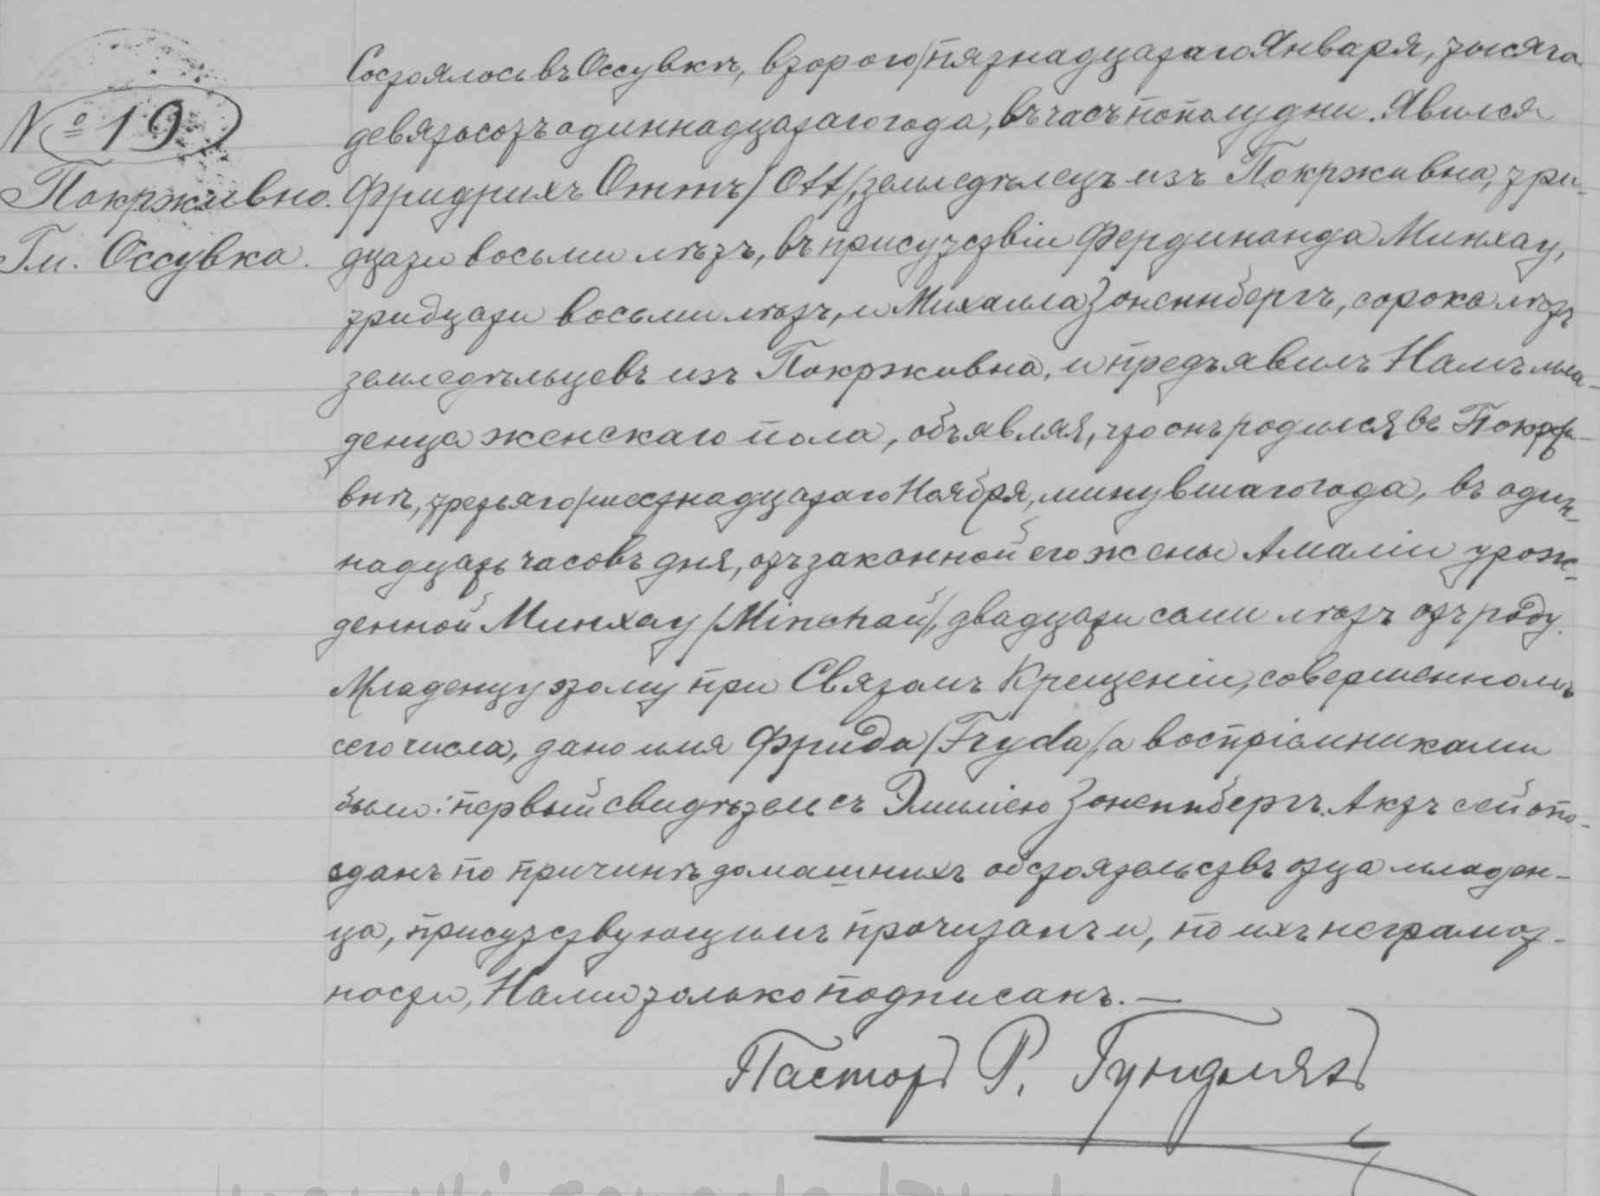 № 19
Покрживно.
Гм. Оссувка.
Состоялось въ Оссувкѣ, второго/пятнадцатаго Января, тысяча
девятьсотъ одиннадцатаго года, въ часъ пополудни. Явился
Фридрихъ Оттъ /Ott/, земледѣлецъ изъ Покрживна, три-
дцати восьми лѣтъ, въ присутствіи Фердинанда Минхау,
тридцати восьми лѣтъ, и Михаила Зоненнбергъ, сорока лѣтъ
земледѣльцевъ изъ Покрживна, и предъявилъ Намъ мла-
денца женскаго пола, объявляя, что онъ родился въ Покржи-
внѣ, третьяго/шестнадцатаго Ноября, минувшаго года, въ один-
надцать часовъ дня, отъ законной его жены Амаліи урож-
денной Минхау /Minchau/, двадцати семи лѣтъ отъ роду.
Младенцу этому при Святомъ Крещеніи, совершенномъ
сего числа, дано имя Фрида /Fryda/, а воспріемниками
были: первый свидѣтель съ Эмиліею Зоненнбергъ. Актъ сей опо-
зданъ по причинѣ домашнихъ обстоятельствъ отца младен-
ца, присутствующимъ прочитанъ и, по ихъ неграмот-
ности, Нами только подписанъ. —
Пасторъ Р. Гундляхъ